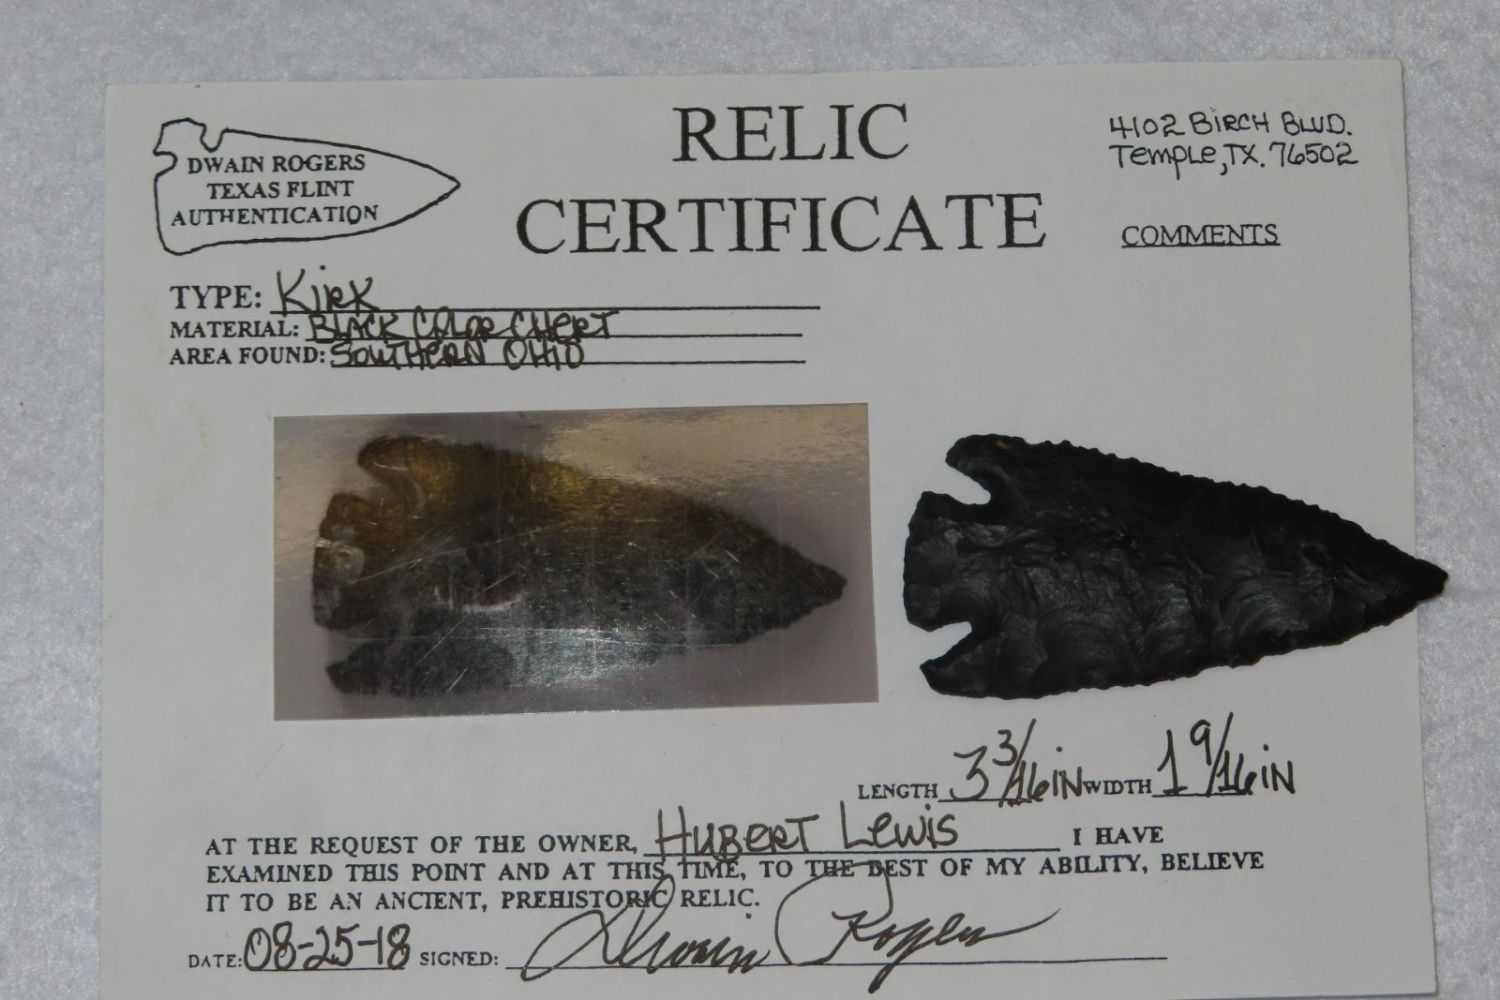 DWAIN ROGERS
TEXAS FLINT
AUTHENTICATION
RELIC
CERTIFICATE
4102 BIRCH BLVD.
Temple, TX. 76502
COMMENTS
TYPE: Kirk
MATERIAL: BLACK COLOR CHERT
AREA FOUND: SOUTHERN OHIO
LENGTH 3 3/16 IN WIDTH 1 9/16 IN
AT THE REQUEST OF THE OWNER, HUBERT LEWIS I HAVE
EXAMINED THIS POINT AND AT THIS TIME, TO THE BEST OF MY ABILITY, BELIEVE
IT TO BE AN ANCIENT, PREHISTORIC RELIC.
DATE: 08-25-18 SIGNED: Dwain Rogers